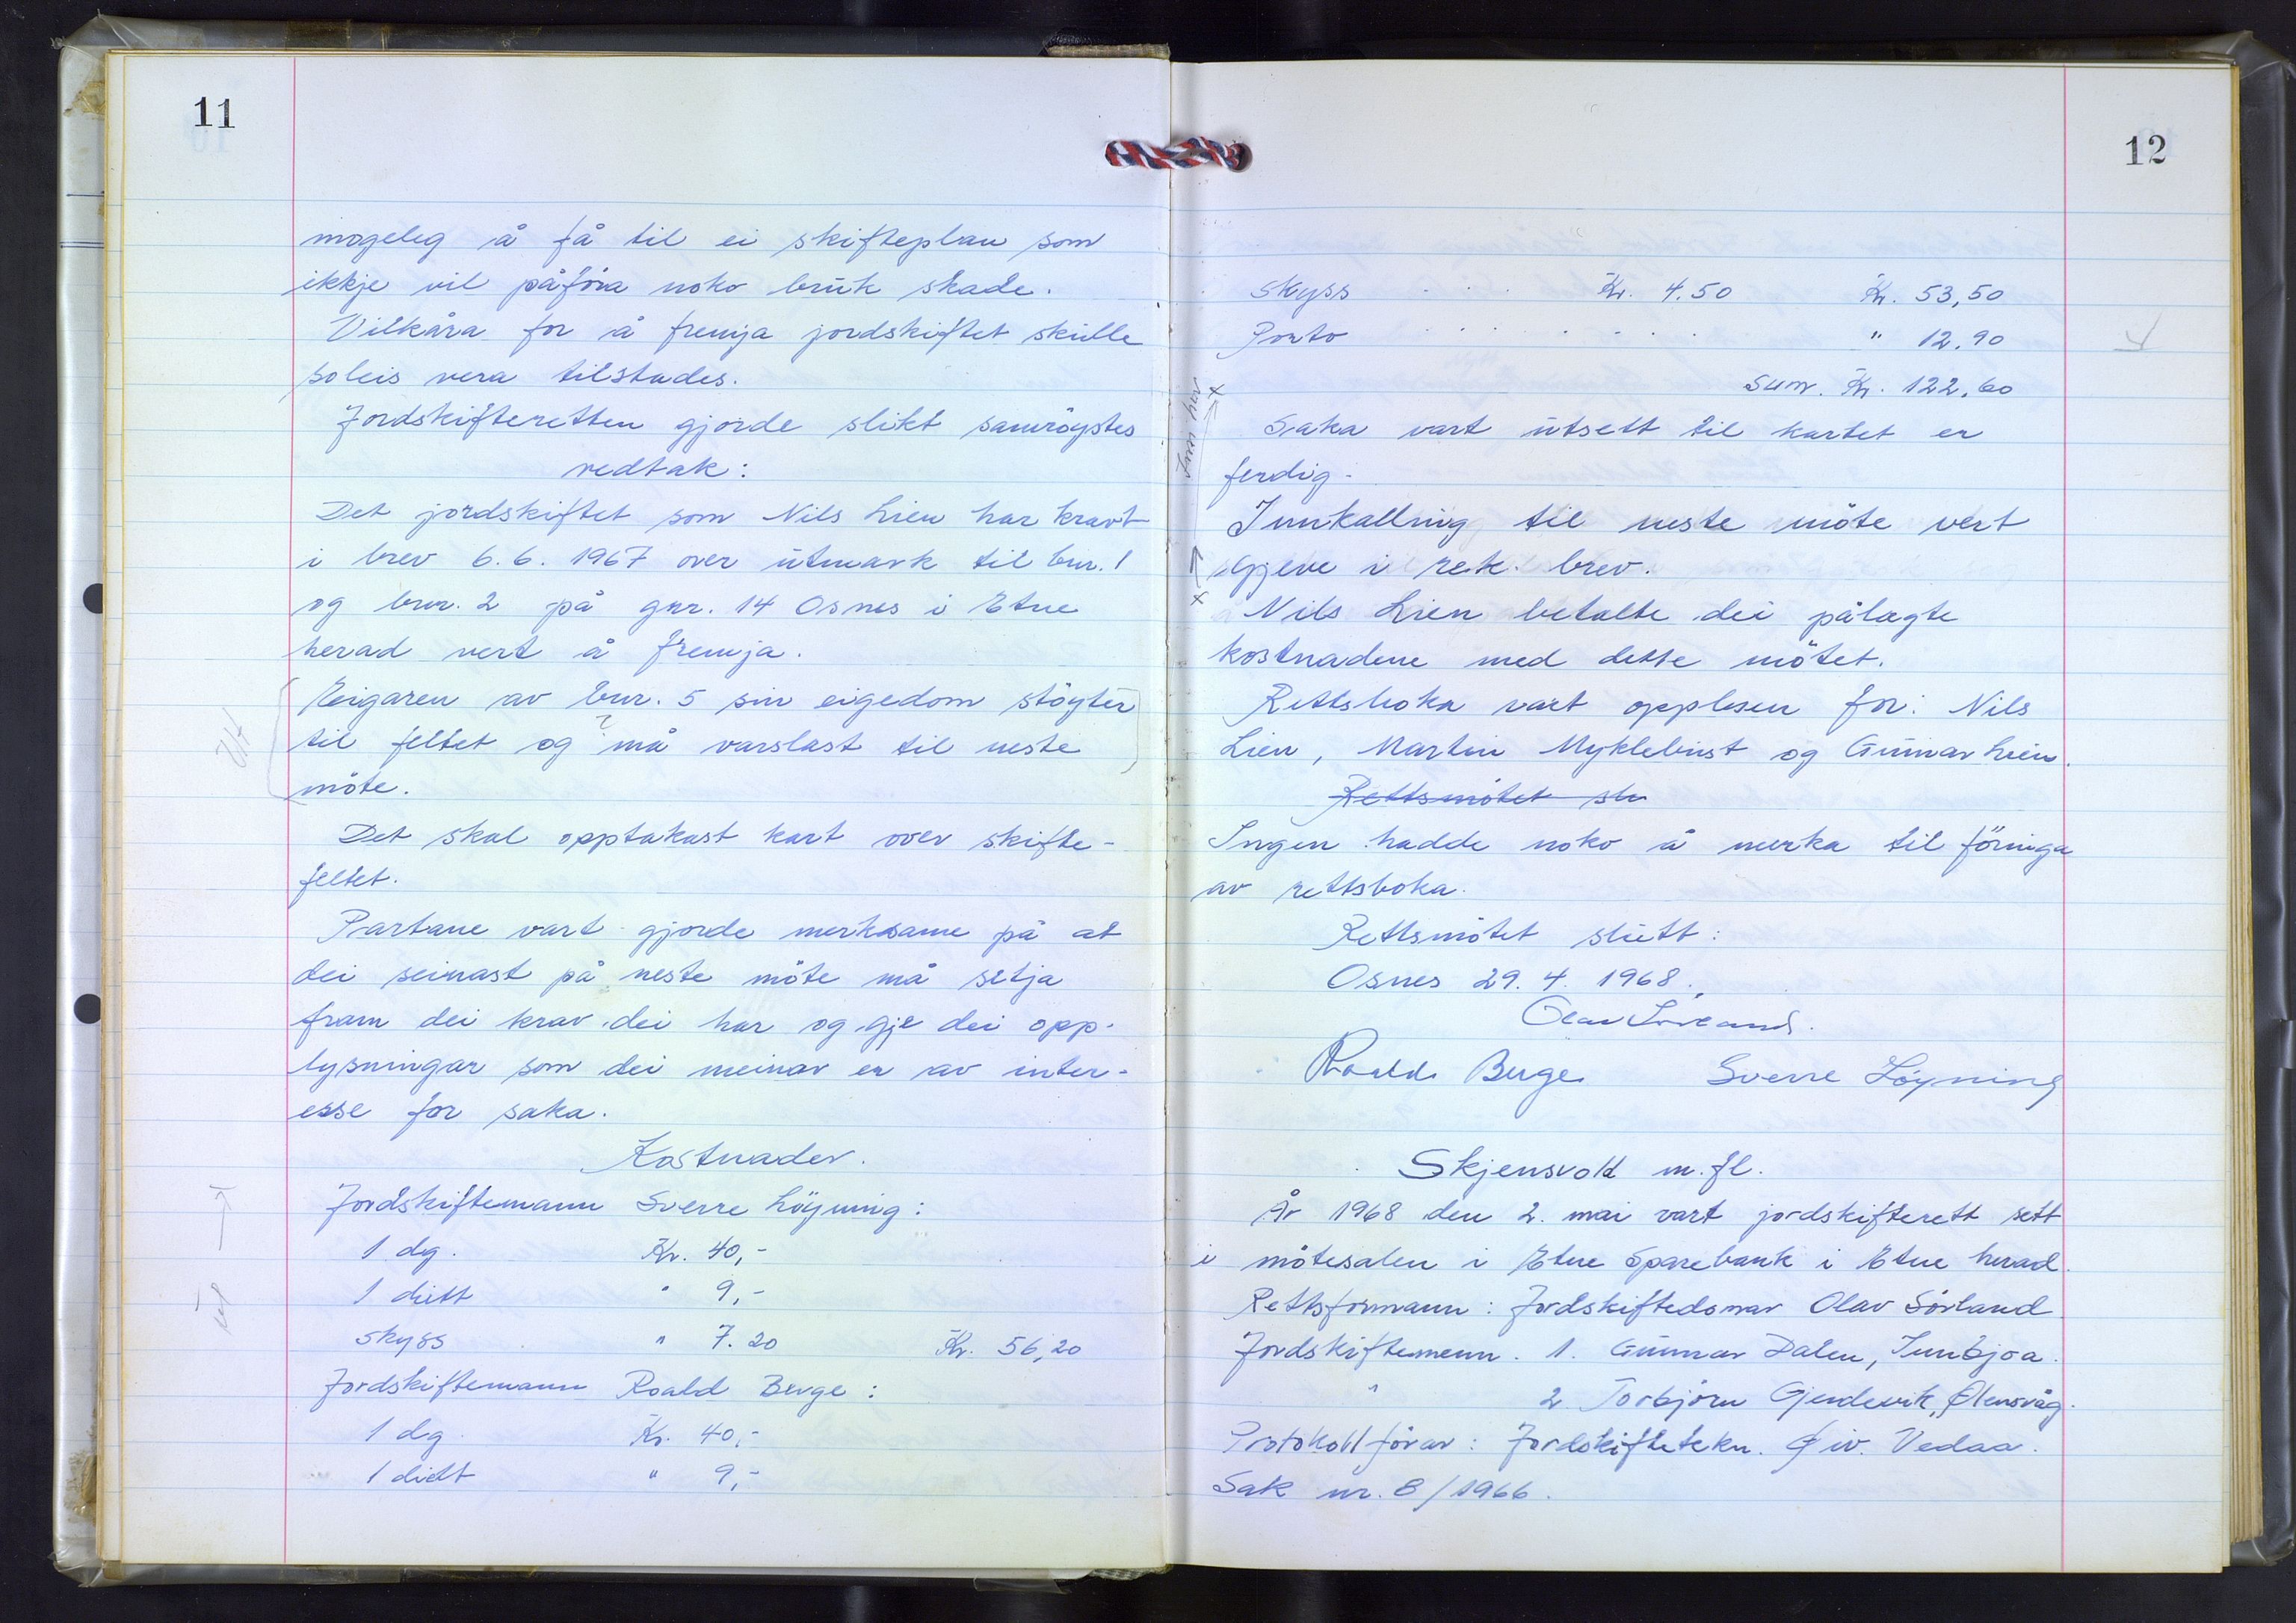 11
mogeleg å få til ei skifteplan som
ikkje vil påföra noko bruk skade.
Vilkåra for å fremja jordskiftet skulle
soleis vera tilstades.
Jordskifteretten gjorde slikt samröystes
vedtak:
Det jordskiftet som Nils Lien har kravt
i brev 6.6. 1967 over utmark til bnr. 1
og bnr. 2 på gnr. 14 Osnes i Etne
herad vert å fremja.
Eigaren av bnr. 5 sin eigedom stöyter
til feltet og må varslast til neste
möte.
Det skal opptakast kart over skifte-
feltet.
Partane vart gjorde merksame på at
dei seinast på neste möte må setja
fram dei krav dei har og gje dei opp-
lysningar som dei meinar er av inter-
esse for saka.
Kostnader.
Jordskiftemann Sverre Löyning:
1 dg. Kr. 40,-
1 diett " 9,-
Skyss " 7.20 Kr. 56,20
Jordskiftemann Roald Berge:
1 dg. Kr. 40,-
1 diett " 9,-
12
Skyss . . . Kr. 4.50 Kr. 53,50
Porto . . . . . . " 12.90
Sum. Kr. 122.60
Saka vart utsett til kartet er
ferdig.
Innkalling til neste möte vert
gjeve i rek. brev.
Nils Lien betalte dei pålagte
kostnadene med dette mötet.
Rettsboka vart opplesen for: Nils
Lien, Martin Myklebust og Gunnar Lien.
Rettsmötet slu
Ingen hadde noko å merka til föringa
av rettsboka.
Rettsmötet slutt:
Osnes 29.4. 1968.
Olav Sörland.
Roald Berge Sverre Löyning
Skjensvold m.fl.
År 1968 den 2. mai vart jordskifterett sett
i mötesalen i Etne Sparebank i Etne herad.
Rettsformann: Jordskiftedomar Olav Sörland
Jordskiftemenn. 1. Gunnar Dalen, Innbjoa.
" 2. Torbjörn Gjerdevik, Ølensvåg.
Protokollförar: Jordskiftetekn. Øiv. Vedaa.
Sak nr. 8/1966.